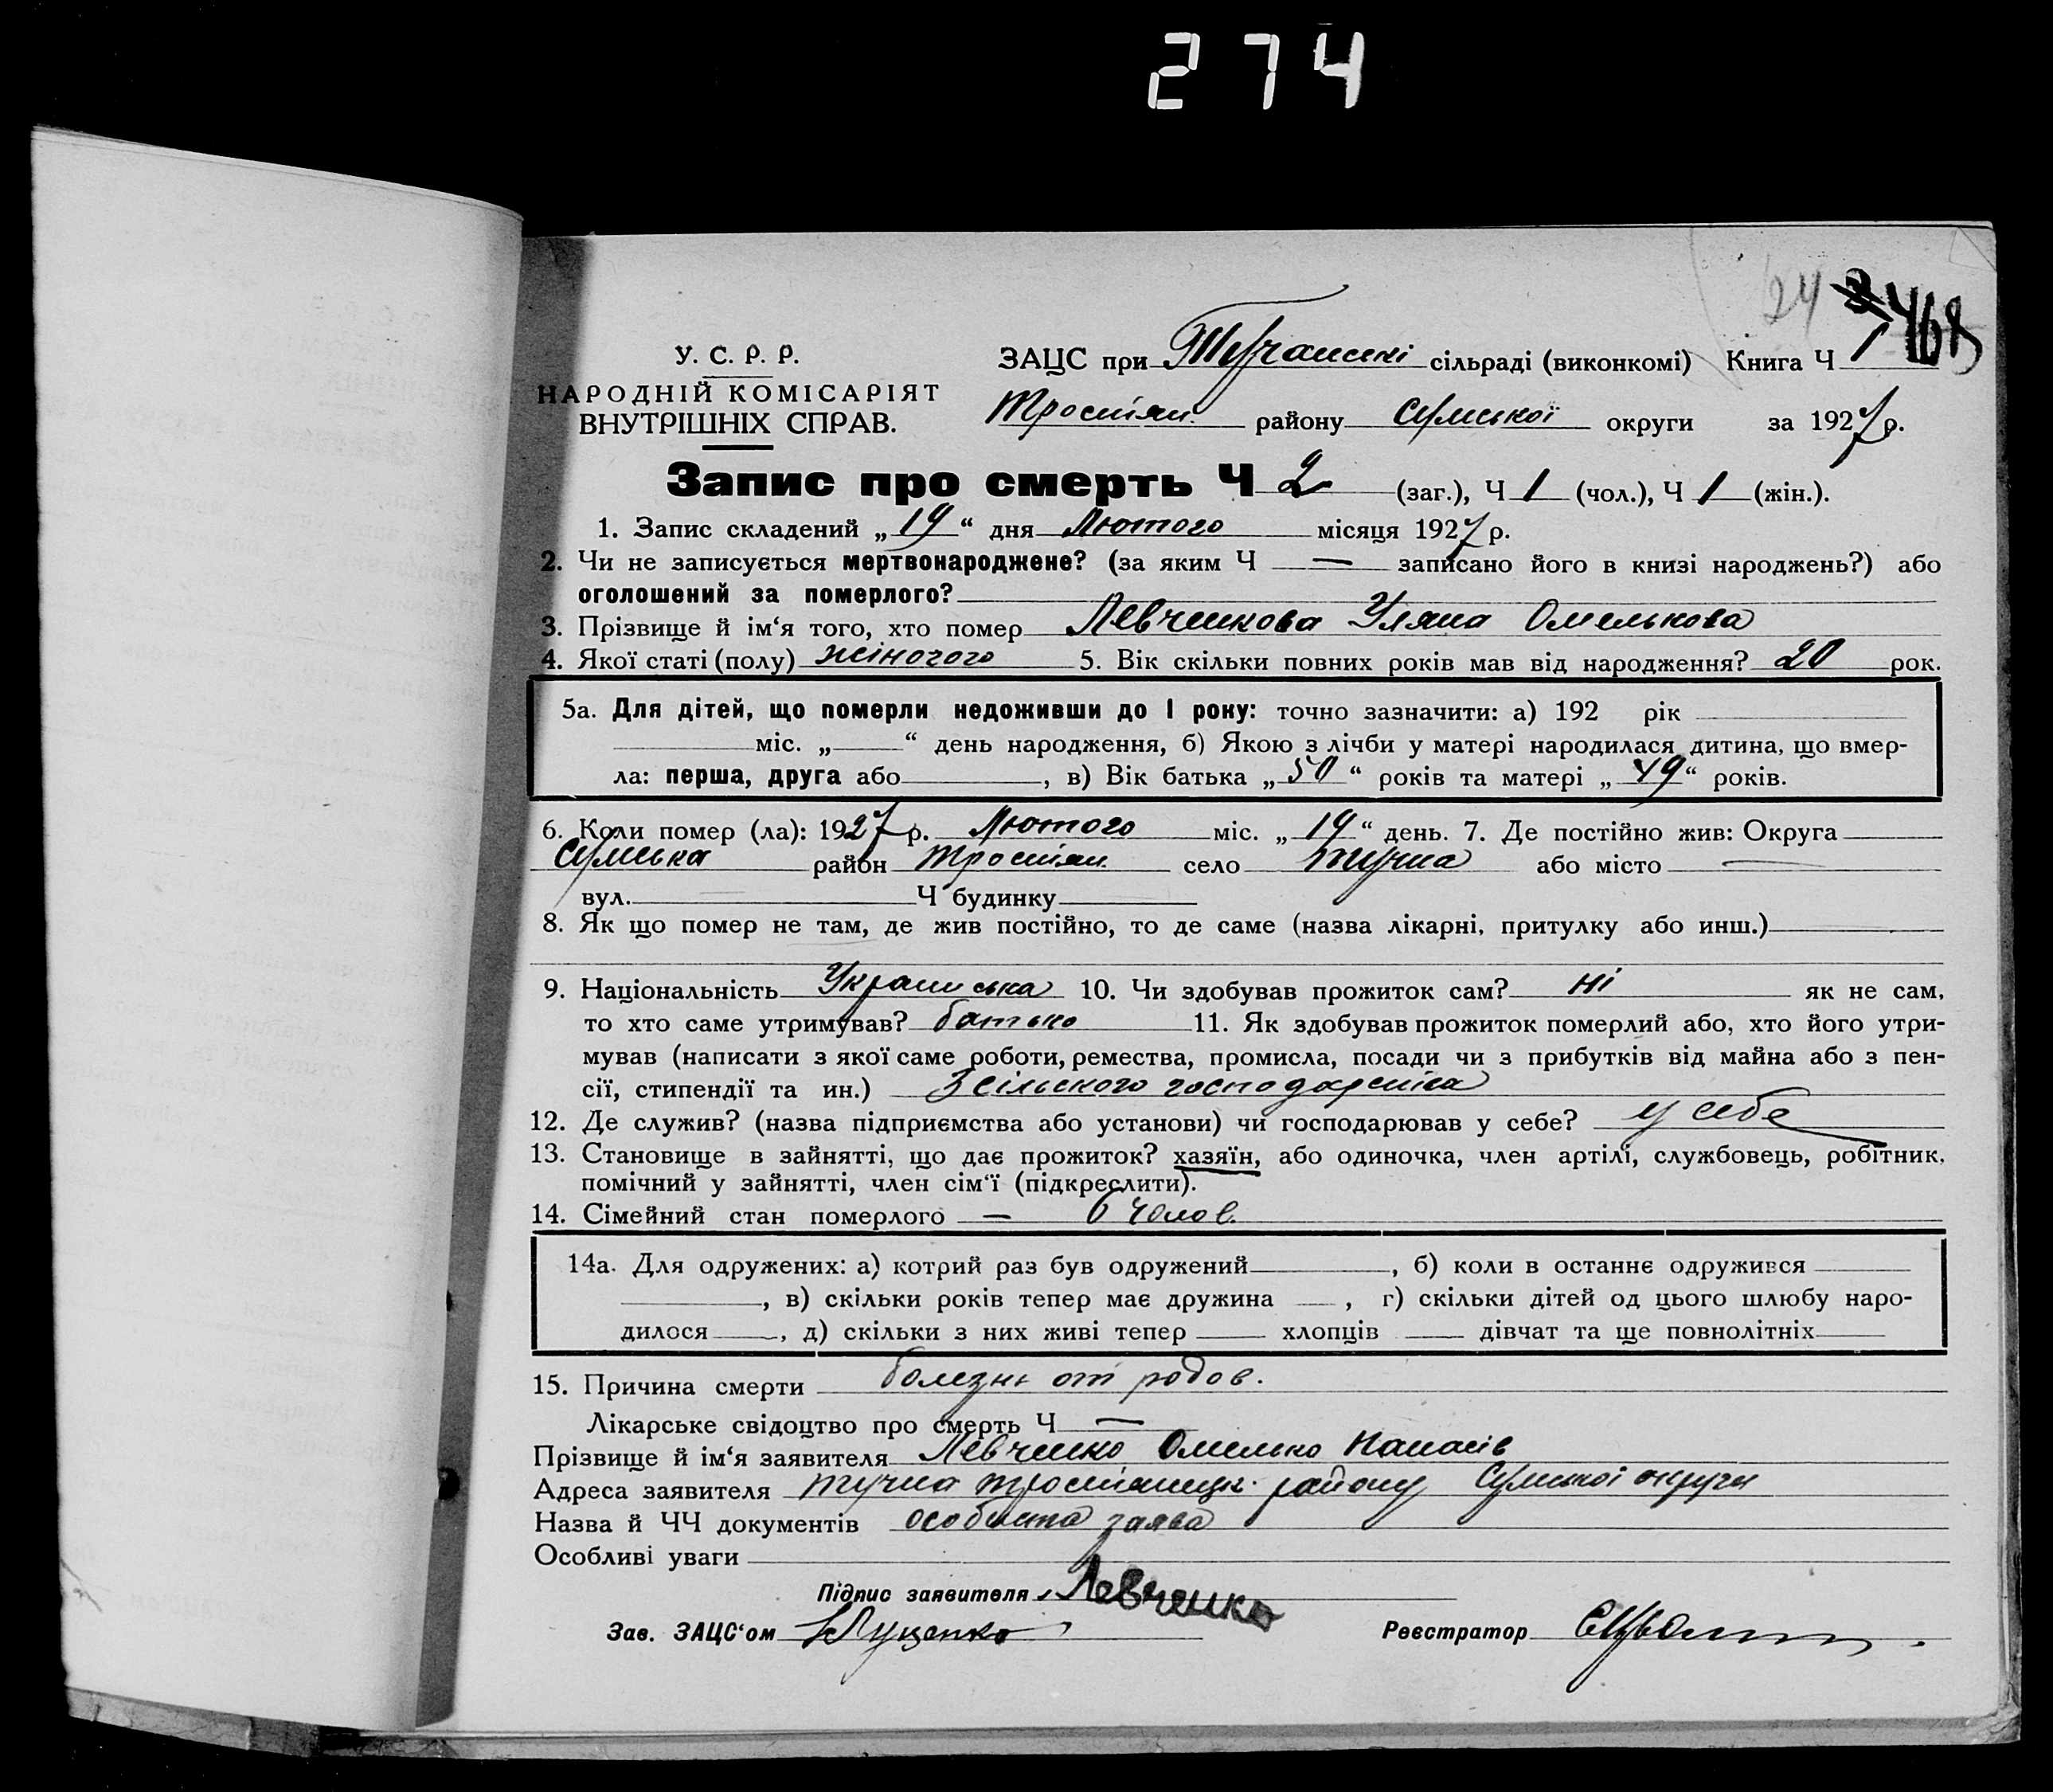 274
24 3 468
У. С. Р. Р.
НАРОДНІЙ КОМІСАРІЯТ
ВНУТРІШНІХ СПРАВ.
ЗАЦС при сільраді (виконкомі) Книга Ч 1
Тростян. району Сумської округи за 1927 р.
Запис про смерть Ч 2 (заг.), Ч 1 (чол.), Ч 1 (жін.).
1. Запис складений „19“ дня Лютого місяця 1927 р.
2. Чи не записується мертвонароджене? (за яким Ч — записано його в книзі народжень?) або
оголошений за померлого?
3. Прізвище й ім‘я того, хто помер Левченкова Уляна Омелькова
4. Якої статі (полу) жіночого 5. Вік скільки повних років мав від народження? 20 рок.
5а. Для дітей, що померли недоживши до 1 року: точно зазначити: а) 192 рік
міс. „ “ день народження, б) Якою з лічби у матері народилася дитина, що вмер-
ла: перша, друга або , в) Вік батька „50“ років та матері „49“ років.
6. Коли помер (ла): 1927 р. Лютого міс. „19“ день. 7. Де постійно жив: Округа
Сумська район Тростян. село Тучна або місто —
вул. Ч будинку
8. Як що помер не там, де жив постійно, то де саме (назва лікарні, притулку або инш.)
9. Національність Українська 10. Чи здобував прожиток сам? Ні як не сам,
то хто саме утримував? батько 11. Як здобував прожиток померлий або, хто його утри-
мував (написати з якої саме роботи, ремества, промисла, посади чи з прибутків від майна або з пен-
сії, стипендії та ин.) З сільского господарства
12. Де служив? (назва підприємства або установи) чи господарював у себе? у себе
13. Становище в зайнятті, що дає прожиток? хазяїн, або одиночка, член артілі, службовець, робітник,
помічний у зайнятті, член сім‘ї (підкреслити).
14. Сімейний стан померлого — 6 чолов.
14а. Для одружених: а) котрий раз був одружений , б) коли в останнє одружився
, в) скільки років тепер має дружина , г) скільки дітей од цього шлюбу наро-
дилося , д) скільки з них живі тепер хлопців дівчат та ще повнолітніх
15. Причина смерти болезнь от родов.
Лікарське свідоцтво про смерть Ч —
Прізвище й ім‘я заявителя Левченко Омелько Панасів
Адреса заявителя Тучна Тростянецьк. району Сумської округи
Назва й ЧЧ документів особиста заява
Особливі уваги
Підпис заявителя Левченко
Зав. ЗАЦС‘ом Луценко
Реєстратор